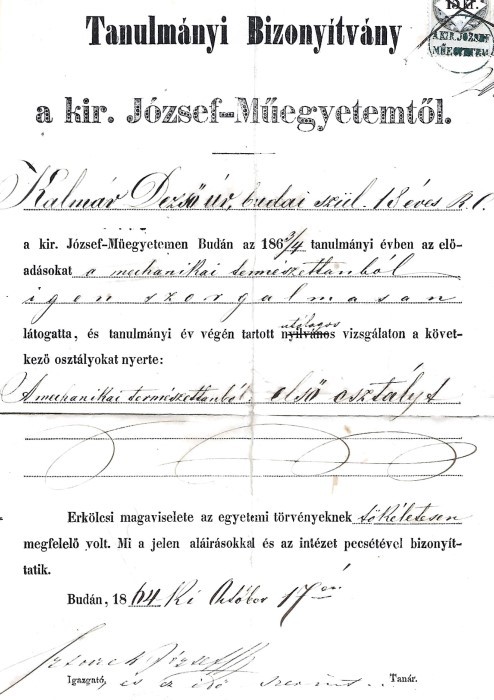 15 kr.
A KIR. JÓZSEF
MŰEGYETEM
Tanulmányi Bizonyítvány
a kir. József-Műegyetemtől.
Kalmár Dezső úr, budai szül. 18 éves R. C.
a kir. József-Műegyetemen Budán az 186 3/4 tanulmányi évben az elő-
adásokat a mechanikai természettanból
igen szorgalmasan
utólagos
látogatta, és tanulmányi év végén tartott nyilvános vizsgálaton a követ-
kező osztályokat nyerte:
A mechanikai természettanból, első osztályt
Erkölcsi magaviselete az egyetemi törvényeknek tökéletesen
megfelelő volt. Mi a jelen aláirásokkal és az intézet pecsétével bizonyít-
tatik.
Budán, 1864 ki Október 17én
József
Igazgató, és az idő szerint Tanár.